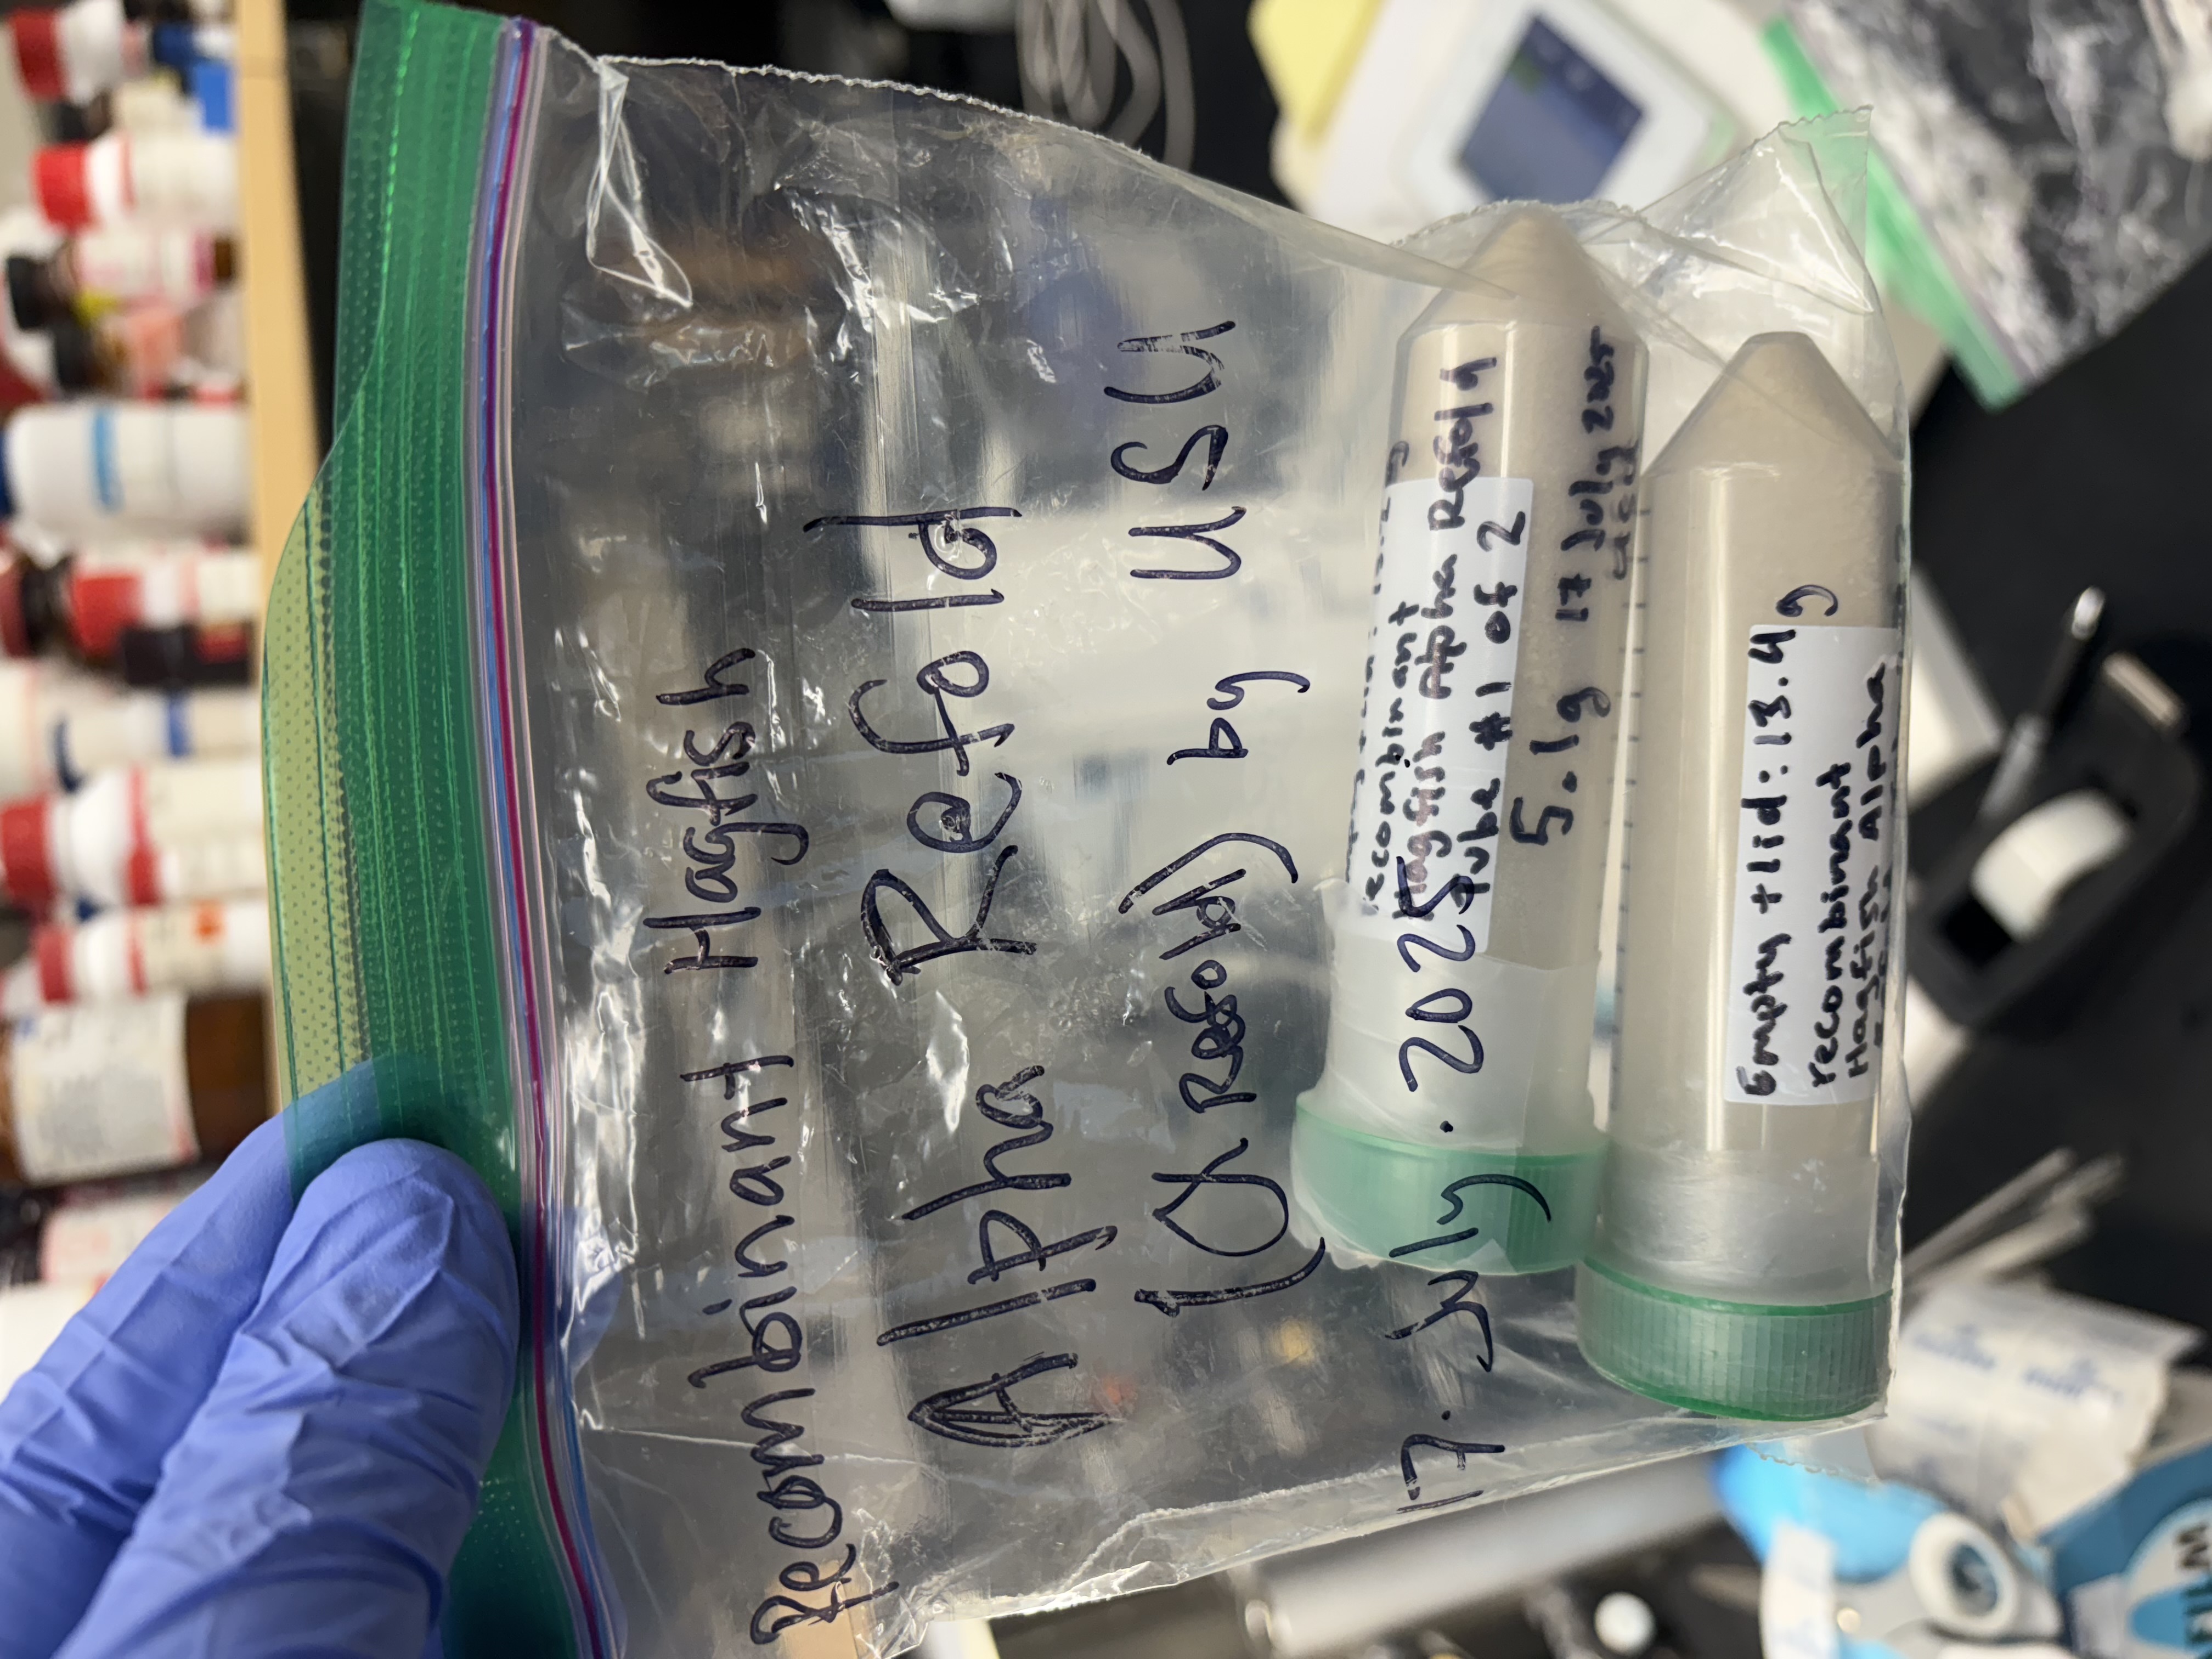 Recombinant Hagfish
Alpha Refold
(α Refold) by USU
17. July. 2025
recombinant
Hagfish Alpha Refold
Tube #1 of 2
5.1g 17 July 2025
Empty + lid: 13.4g
recombinant
Hagfish Alpha
FILM